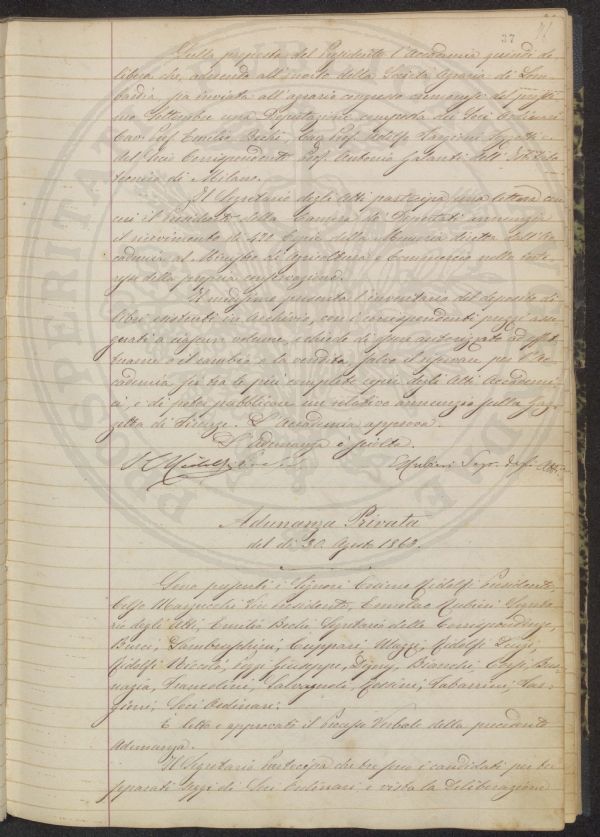 37
Sulla proposta del Presidente l'Accademia quindi de
libera che, aderendo all'invito della Società Agraria di Lom
bardia, sia inviata all'agrario congresso cremonese del prossi
mo Settembre una Deputazione composta dei Soci Ordinari
Cav. Prof. Emilio Bechi, Cav. Prof. Adolfo Targioni Tozzetti e
del Socio Corrispondente Prof. Antonio Galanti dell'
tecnico di Milano.
Il Segretario degli Atti partecipa una lettera con
cui il Presidente della Camera de' Deputati annunzia
il ricevimento di 420 Copie della Memoria diretta dall'Ac
cademia al Ministro di Agricoltura e Commercio nella
della propria
Il medesimo presenta l'inventario del deposito di
libri esistenti in Archivio, con i corrispondenti prezzi asse
gnati a ciascun volume, e chiede di essere autorizzato ad effet
tuarne o il cambio o la vendita, salvo il riservare per l'Ac
cademia fra le più complete copie degli Atti Accademi
ci, e di poter pubblicare un relativo annunzio sulla Gaz
zetta di Firenze. L'Accademia approva.
L'Adunanza è sciolta.
C. Ridolfi
E. Rubieri Segr. degli Atti
PROSPERITA
Adunanza Privata
del dì 30. Agosto 1863.
Sono presenti i Signori Cosimo Ridolfi Presidente,
Celso Marzucchi Vice presidente, Ermolao Rubieri Segreta
rio degli Atti, Emilio Bechi, Segretario delle Corrispondenze,
Busi, Lambruschini, Cuppari, Mazzi, Ridolfi Luigi,
Ridolfi Niccolò, Poggi Giuseppe, Digny, Bianchi, Corsi, Buo
nazia, Franceschini, Salvagnoli, Cossini, Tabarrini, Tar
gioni, Soci Ordinari.
È letto e approvato il Processo Verbale della precedente
Adunanza.
Il Segretario partecipa che tre sono i candidati per tre
separati seggi di Soci Ordinari, e vista la Deliberazione